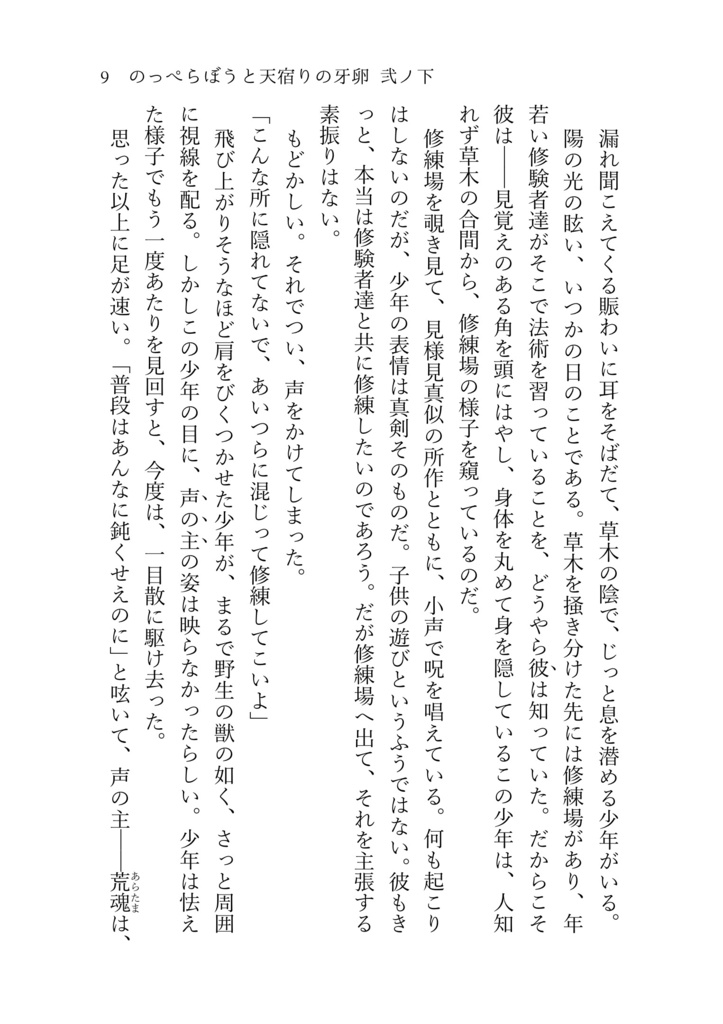 9 のっぺらぼうと天宿りの牙卵 弐ノ下
漏れ聞こえてくる賑わいに耳をそばだて、草木の陰で、じっと息を潜める少年がいる。
陽の光の眩い、いつかの日のことである。草木を掻き分けた先には修練場があり、年
若い修験者達がそこで法術を習っていることを、どうやら彼は知っていた。だからこそ
彼は――見覚えのある角を頭にはやし、身体を丸めて身を隠しているこの少年は、人知
れず草木の合間から、修練場の様子を窺っているのだ。
修練場を覗き見て、見様見真似の所作とともに、小声で呪を唱えている。何も起こり
はしないのだが、少年の表情は真剣そのものだ。子供の遊びというふうではない。彼もき
っと、本当は修験者達と共に修練したいのであろう。だが修練場へ出て、それを主張する
素振りはない。
もどかしい。それでつい、声をかけてしまった。
「こんな所に隠れてないで、あいつらに混じって修練してこいよ」
飛び上がりそうなほど肩をびくつかせた少年が、まるで野生の獣の如く、さっと周囲
に視線を配る。しかしこの少年の目に、声の主の姿は映らなかったらしい。少年は怯え
た様子でもう一度あたりを見回すと、今度は、一目散に駆け去った。
思った以上に足が速い。「普段はあんなに鈍くせえのに」と呟いて、声の主――荒魂は、
あらたま